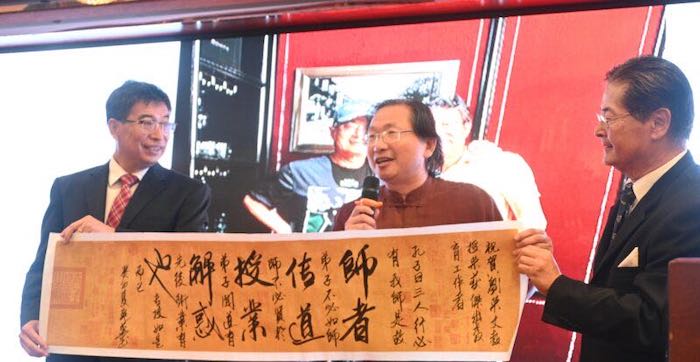 祝賀劉
授榮獲傑出教
育工作者
孔子曰三人行必
有我師是故
師者
弟子不必如師
传道
師不必賢於
授業
弟子聞道有
解惑
先後術業有
也
專攻如是
而已